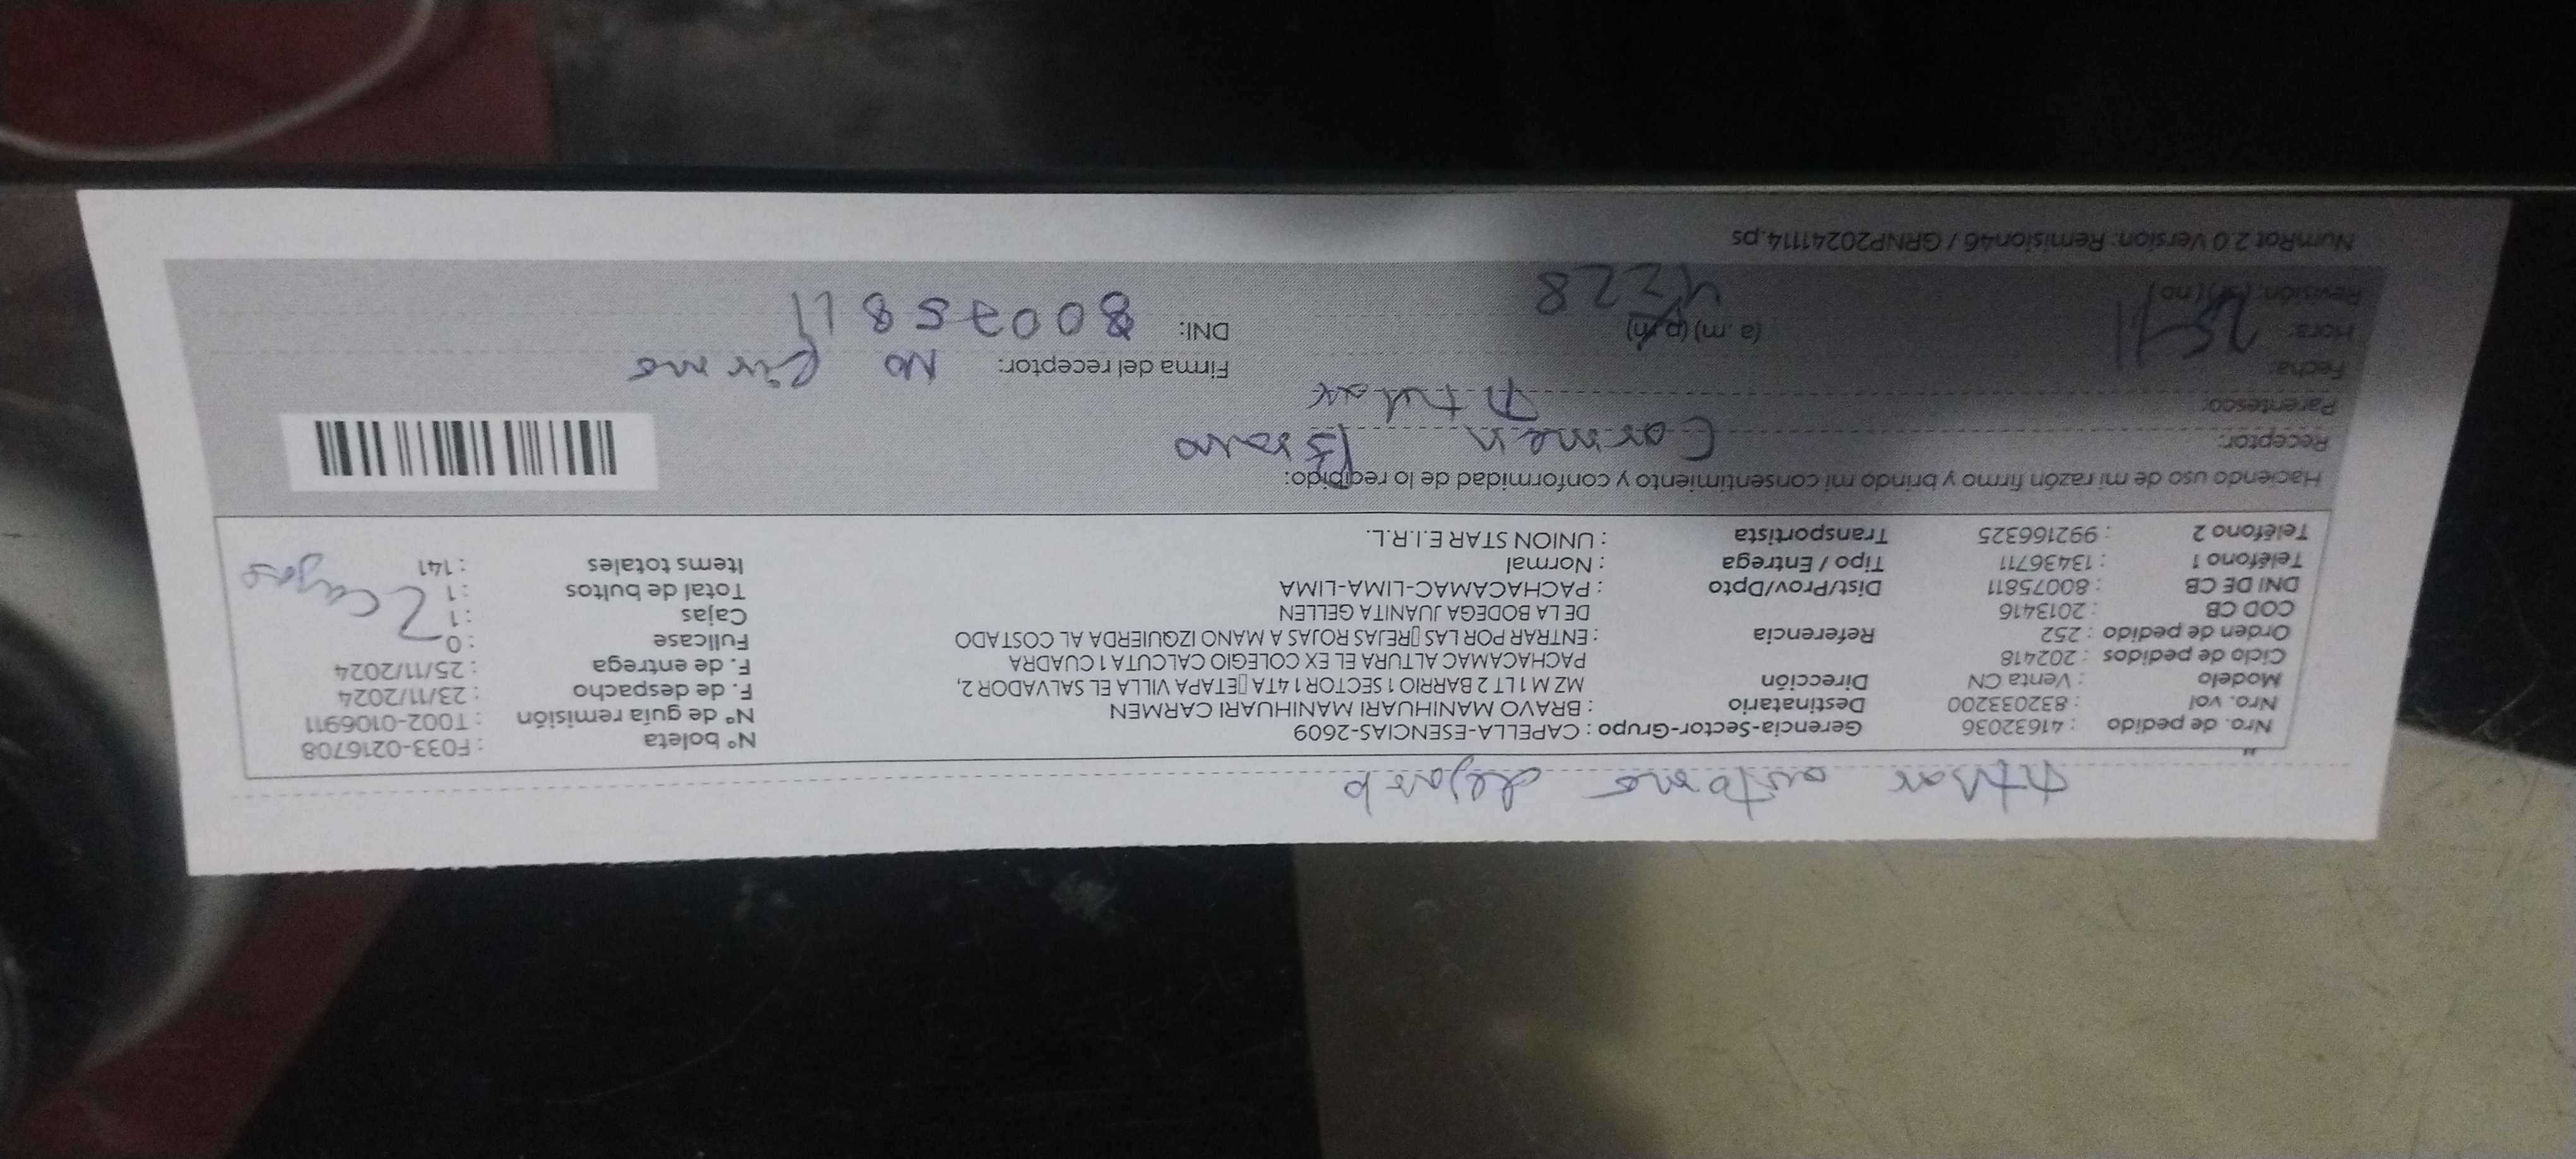 titular autoriza dejar p
Nro. de pedido : 41632036
Nro. vol : 832033200
Modelo : Venta CN
Ciclo de pedidos : 202418
Orden de pedido : 252
COD CB : 2013416
DNI DE CB : 80075811
Teléfono 1 : 13436711
Teléfono 2 : 992166325
Gerencia-Sector-Grupo : CAPELLA-ESENCIAS-2609
Destinatario : BRAVO MANIHUARI MANIHUARI CARMEN
Dirección MZ M 1 LT 2 BARRIO 1 SECTOR 1 4TA ▯ETAPA VILLA EL SALVADOR 2,
PACHACAMAC ALTURA EL EX COLEGIO CALCUTA 1 CUADRA
Referencia : ENTRAR POR LAS ▯REJAS ROJAS A MANO IZQUIERDA AL COSTADO
DE LA BODEGA JUANITA GELLEN
Dist/Prov/Dpto : PACHACAMAC-LIMA-LIMA
Tipo / Entrega : Normal
Transportista : UNION STAR E.I.R.L.
N° boleta : F033-0216708
N° de guía remisión : T002-0106911
F. de despacho : 23/11/2024
F. de entrega : 25/11/2024
Fullcase : 0
Cajas : 1
Total de bultos : 1
Items totales : 141
2 cajas
Haciendo uso de mi razón firmo y brindo mi consentimiento y conformidad de lo recibido:
Receptor: Carmen Bravo
Parentesco: titular
Fecha: 25-11
Hora: (a. m) (p. m)
4:28
Revisión: (si) (no)
Firma del receptor: No firma
DNI: 80075811
NumRot 2.0 Versión: Remision46 / GRNP20241114.ps